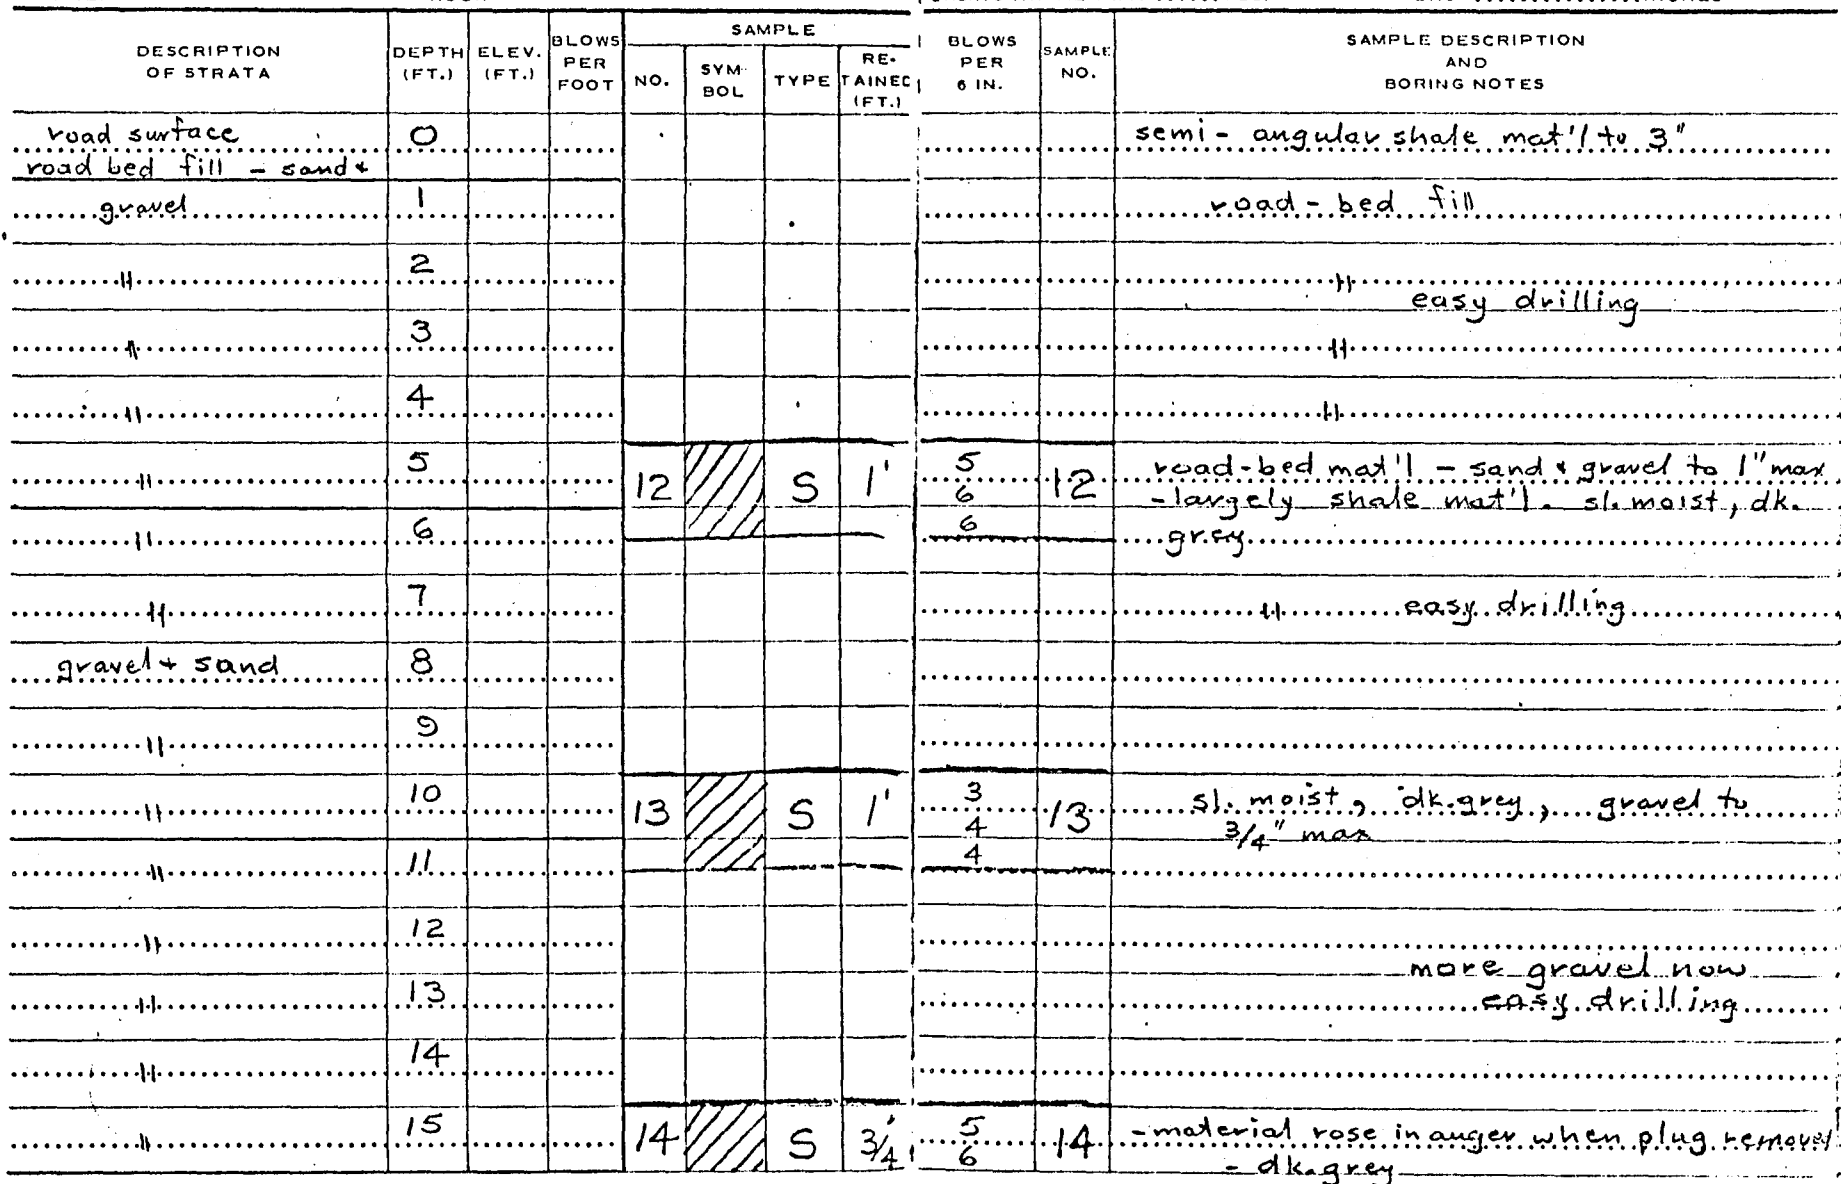 DESCRIPTION OF STRATA DEPTH (FT.) ELEV. (FT.) BLOWS PER FOOT SAMPLE NO. SYM- BOL TYPE RE- TAINED (FT.) BLOWS PER 6 IN. SAMPLE NO. SAMPLE DESCRIPTION AND BORING NOTES
road surface 0 semi - angular shale mat'l to 3"
road bed fill - sand &
gravel 1 road - bed fill
〃 2 〃
easy drilling
〃 3 〃
〃 4 〃
〃 5 12 S 1' 5 12 road-bed mat'l - sand & gravel to 1" max
6 - largely shale mat'l. sl. moist, dk.
〃 6 6 grey
〃 7 〃 easy drilling
gravel + sand 8
〃 9
〃 10 13 S 1' 3 13 sl. moist, dk. grey, gravel to
4 3/4" max
〃 11 4
〃 12
more gravel now
〃 13 easy drilling
〃 14
〃 15 14 S 3/4' 5 14 - material rose in auger when plug removed
6 - dk. grey